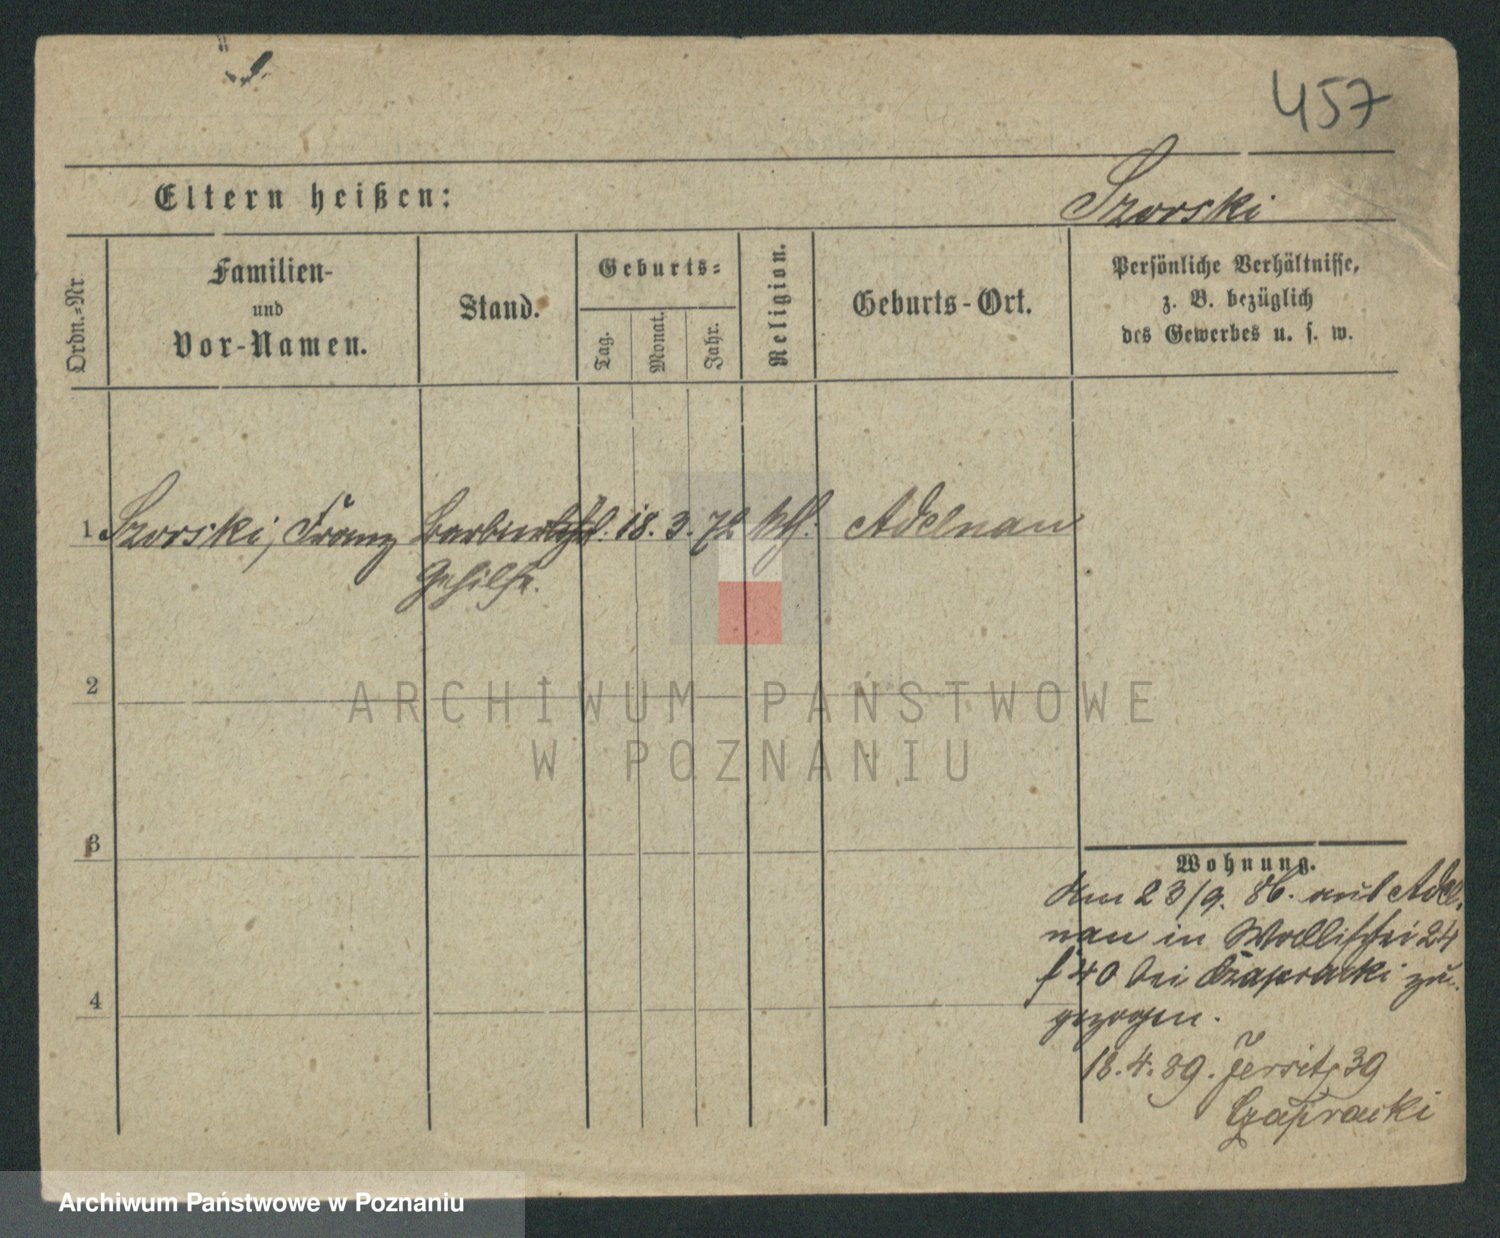 457
Eltern heißen:
Szorski
Ordn.-Nr
Familien-
und
Vor-Namen.
Stand.
Geburts-
Tag.
Monat.
Jahr.
Religion.
Geburts-Ort.
Persönliche Verhältnisse,
z. B. bezüglich
des Gewerbes u. s. w.
1 Szorski, Franz Barbier 18. 3. 72 kth. Adelnau
Gehilfe.
2
ARCHIWUM PAŃSTWOWE
W POZNANIU
3
4
Wohnung.
Am 23/9. 86. aus Adel-
nau in Wallischei 24
f 40 bei Czapracki zu-
gezogen.
18.4.89. Jersitz 39
Czapracki
Archiwum Państwowe w Poznaniu